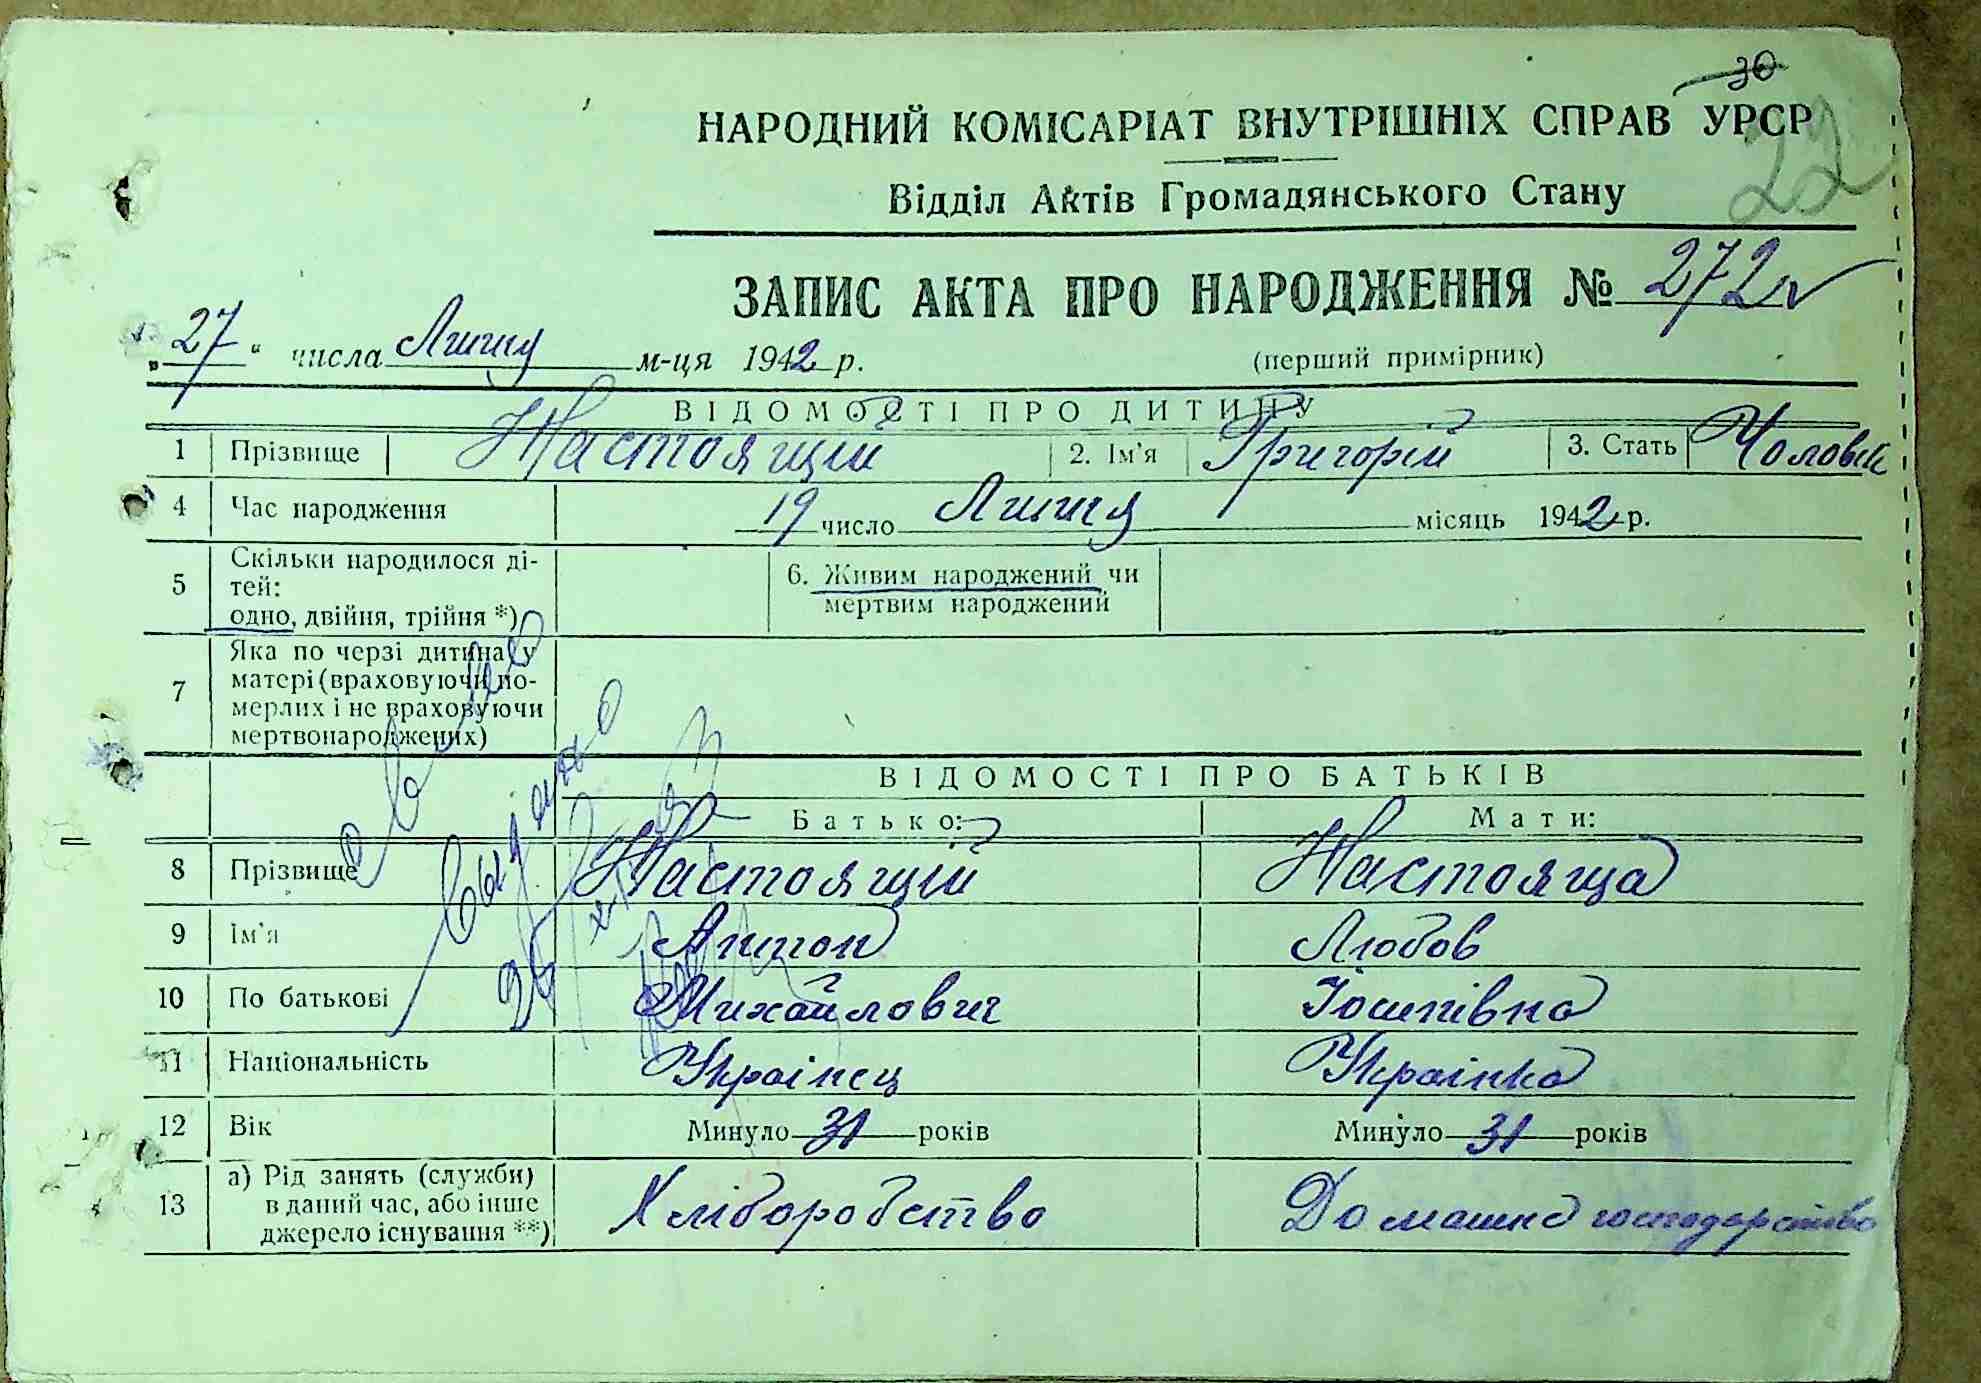 30
НАРОДНИЙ КОМІСАРІАТ ВНУТРІШНІХ СПРАВ УРСР
22
Відділ Актів Громадянського Стану
ЗАПИС АКТА ПРО НАРОДЖЕННЯ № 272
„27“ числа Липця м-ця 1942 р. (перший примірник)
ВІДОМОСТІ ПРО ДИТИНУ
1 Прізвище Настоящій 2. Ім'я Григорій 3. Стать Чоловік
4 Час народження 19 число Липця місяць 1942 р.
5 Скільки народилося ді-
тей:
одно, двійня, трійня *)
6. Живим народжений чи
мертвим народжений
7 Яка по черзі дитина у
матері (враховуючи по-
мерлих і не враховуючи
мертвонароджених)
ВІДОМОСТІ ПРО БАТЬКІВ
Батько: Мати:
8 Прізвище Настоящій Настояща
9 Ім'я Антон Любов
10 По батькові Михайлович Йосипівна
11 Національність Украінец Украінка
12 Вік Минуло 31 років Минуло 31 років
13 а) Рід занять (служби)
в даний час, або інше
джерело існування **)
Хліборобство Домашнє господарство